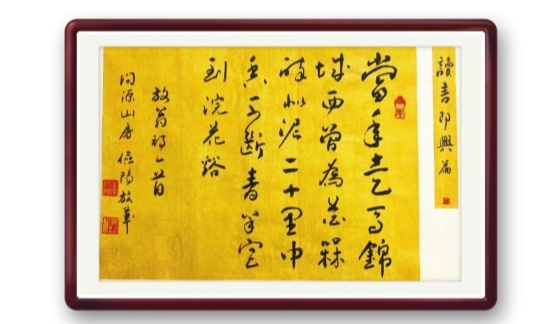 讀書即興篇
當年走馬錦
城西曾為花槑
醉似泥二十里中
香不斷青羊宮
到浣花谿
放翁詩一首
問源山房